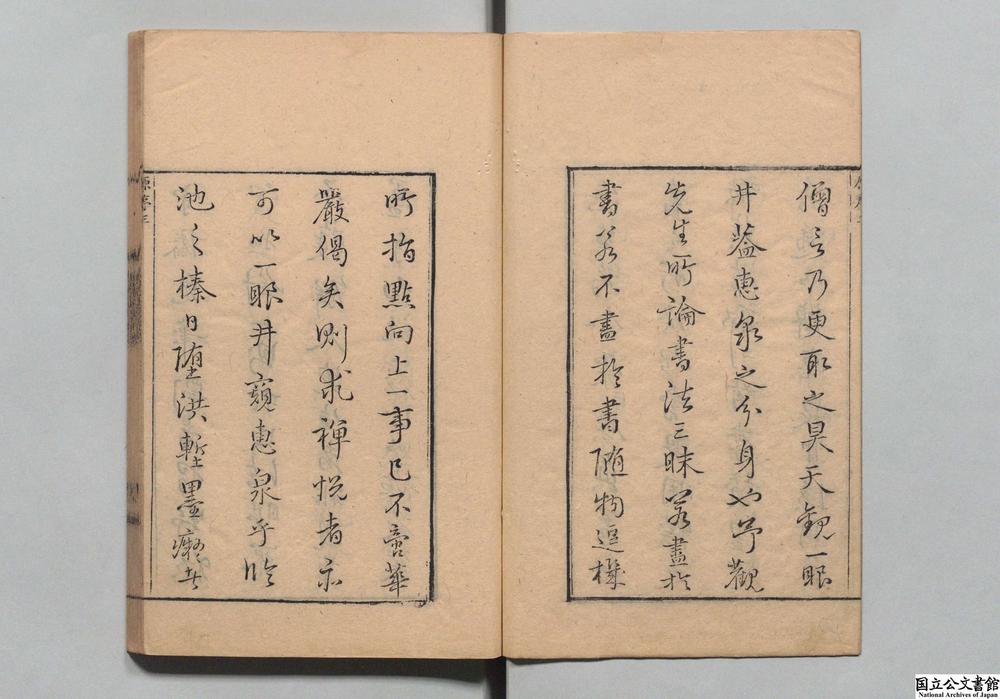 僧云乃更取之昊天觀一眼
井葢惠泉之分身也予觀
先生所論書法三昧若盡於
書若不盡於書隨物逗機
所指點向上一事已不啻華
嚴偈矣則求禪悅者亦
可以一眼井窺惠泉乎臨
池之榛日堕洪塹墨癡
国立公文書館
National Archives of Japan